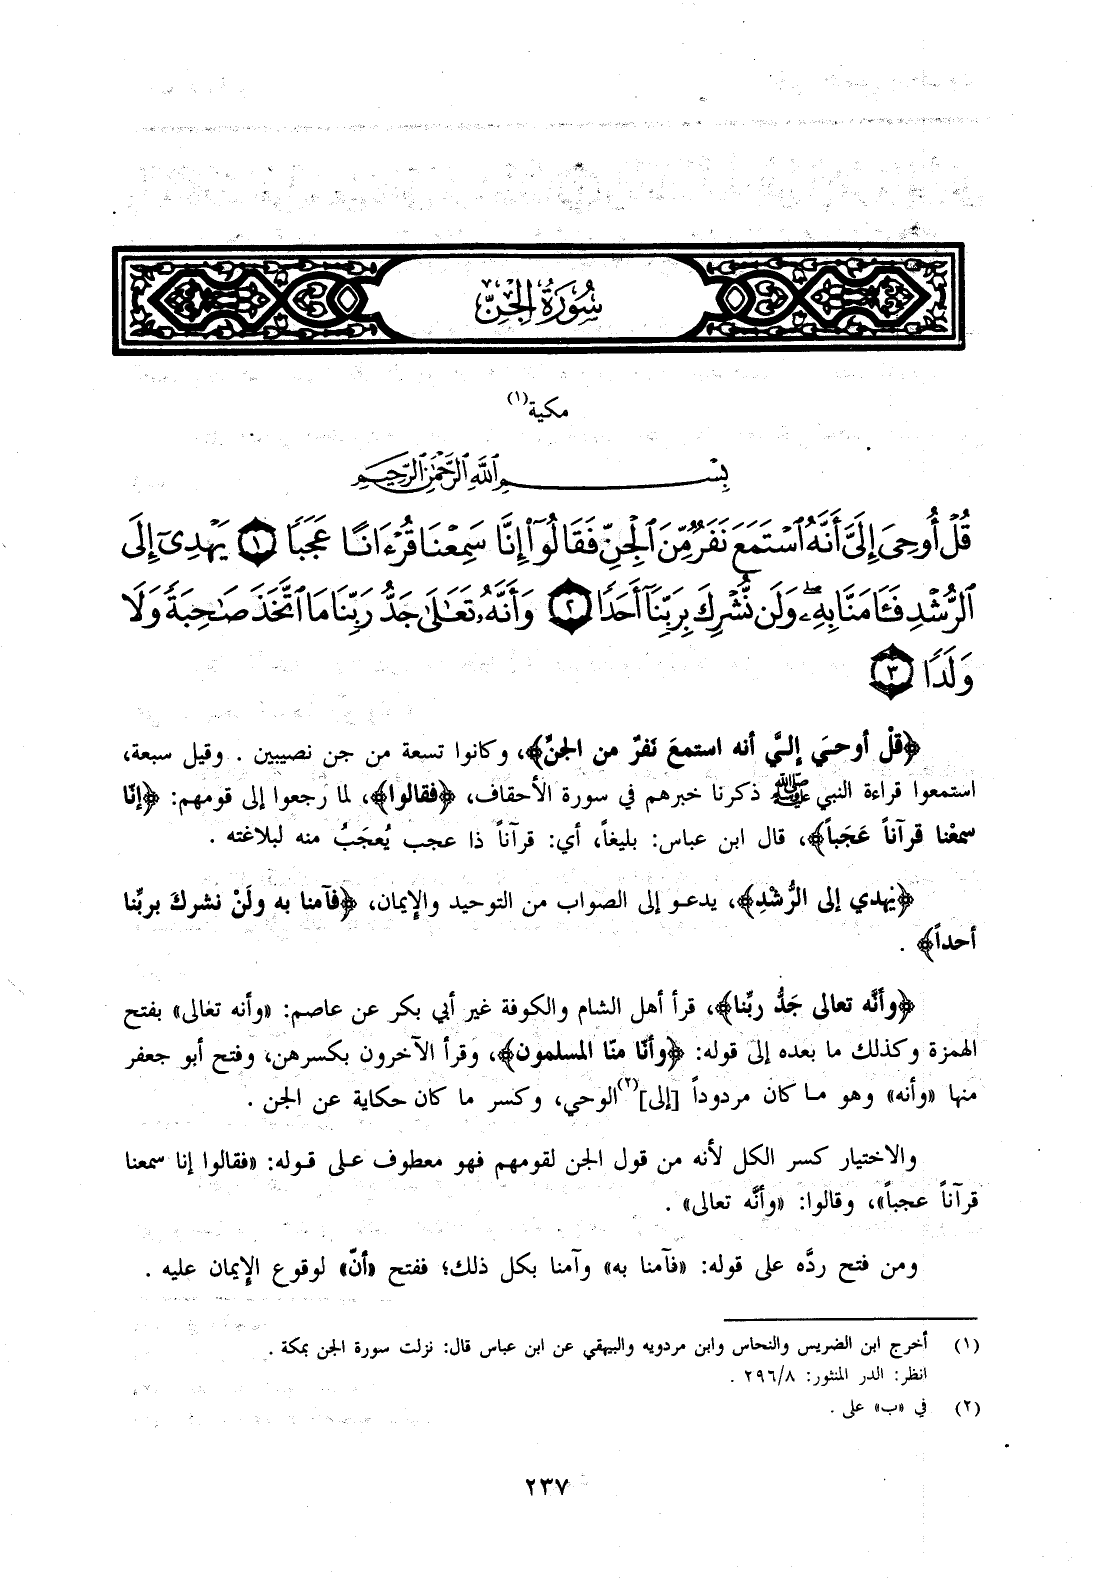 سُورَةُ الجِنِّ
مكية(١)
بِسْمِ ٱللَّهِ ٱلرَّحْمَٰنِ ٱلرَّحِيمِ
قُلْ أُوحِىَ إِلَىَّ أَنَّهُ ٱسْتَمَعَ نَفَرٌ مِّنَ ٱلْجِنِّ فَقَالُوٓا۟ إِنَّا سَمِعْنَا قُرْءَانًا عَجَبًا ١ يَهْدِىٓ إِلَى
ٱلرُّشْدِ فَـَٔامَنَّا بِهِۦ ۖ وَلَن نُّشْرِكَ بِرَبِّنَآ أَحَدًا ٢ وَأَنَّهُۥ تَعَٰلَىٰ جَدُّ رَبِّنَا مَا ٱتَّخَذَ صَٰحِبَةً وَلَا
وَلَدًا ٣
﴿قلْ أوحيَ إليَّ أنه استمعَ نَفرٌ من الجنِّ﴾، وكانوا تسعة من جن نصيبين . وقيل سبعة،
استمعوا قراءة النبي ﷺ ذكرنا خبرهم في سورة الأحقاف، ﴿فقالوا﴾، لما رجعوا إلى قومهم: ﴿إنّا
سمعْنا قرآناً عَجَباً﴾، قال ابن عباس: بليغاً، أي: قرآناً ذا عجب يُعجَبُ منه لبلاغته .
﴿يَهدي إلى الرُّشْدِ﴾، يدعو إلى الصواب من التوحيد والإيمان، ﴿فآمنا به ولَنْ نشركَ بربِّنا
أحداً﴾ .
﴿وأنَّه تعالى جَدُّ ربِّنا﴾، قرأ أهل الشام والكوفة غير أبي بكر عن عاصم: «وأنه تعالى» بفتح
الهمزة وكذلك ما بعده إلى قوله: ﴿وأنّا منّا المسلمون﴾، وقرأ الآخرون بكسرهن، وفتح أبو جعفر
منها «وأنه» وهو ما كان مردوداً [إلى](٢) الوحي، وكسر ما كان حكاية عن الجن .
والاختيار كسر الكل لأنه من قول الجن لقومهم فهو معطوف على قوله: «فقالوا إنا سمعنا
قرآناً عجباً»، وقالوا: «وأنَّه تعالى» .
ومن فتح ردَّه على قوله: «فآمنا به» وآمنا بكل ذلك؛ ففتح «أنّ» لوقوع الإيمان عليه .
(١) أخرج ابن الضريس والنحاس وابن مردويه والبيهقي عن ابن عباس قال: نزلت سورة الجن بمكة .
انظر: الدر المنثور: ٢٩٦/٨ .
(٢) في «ب» على .
٢٣٧